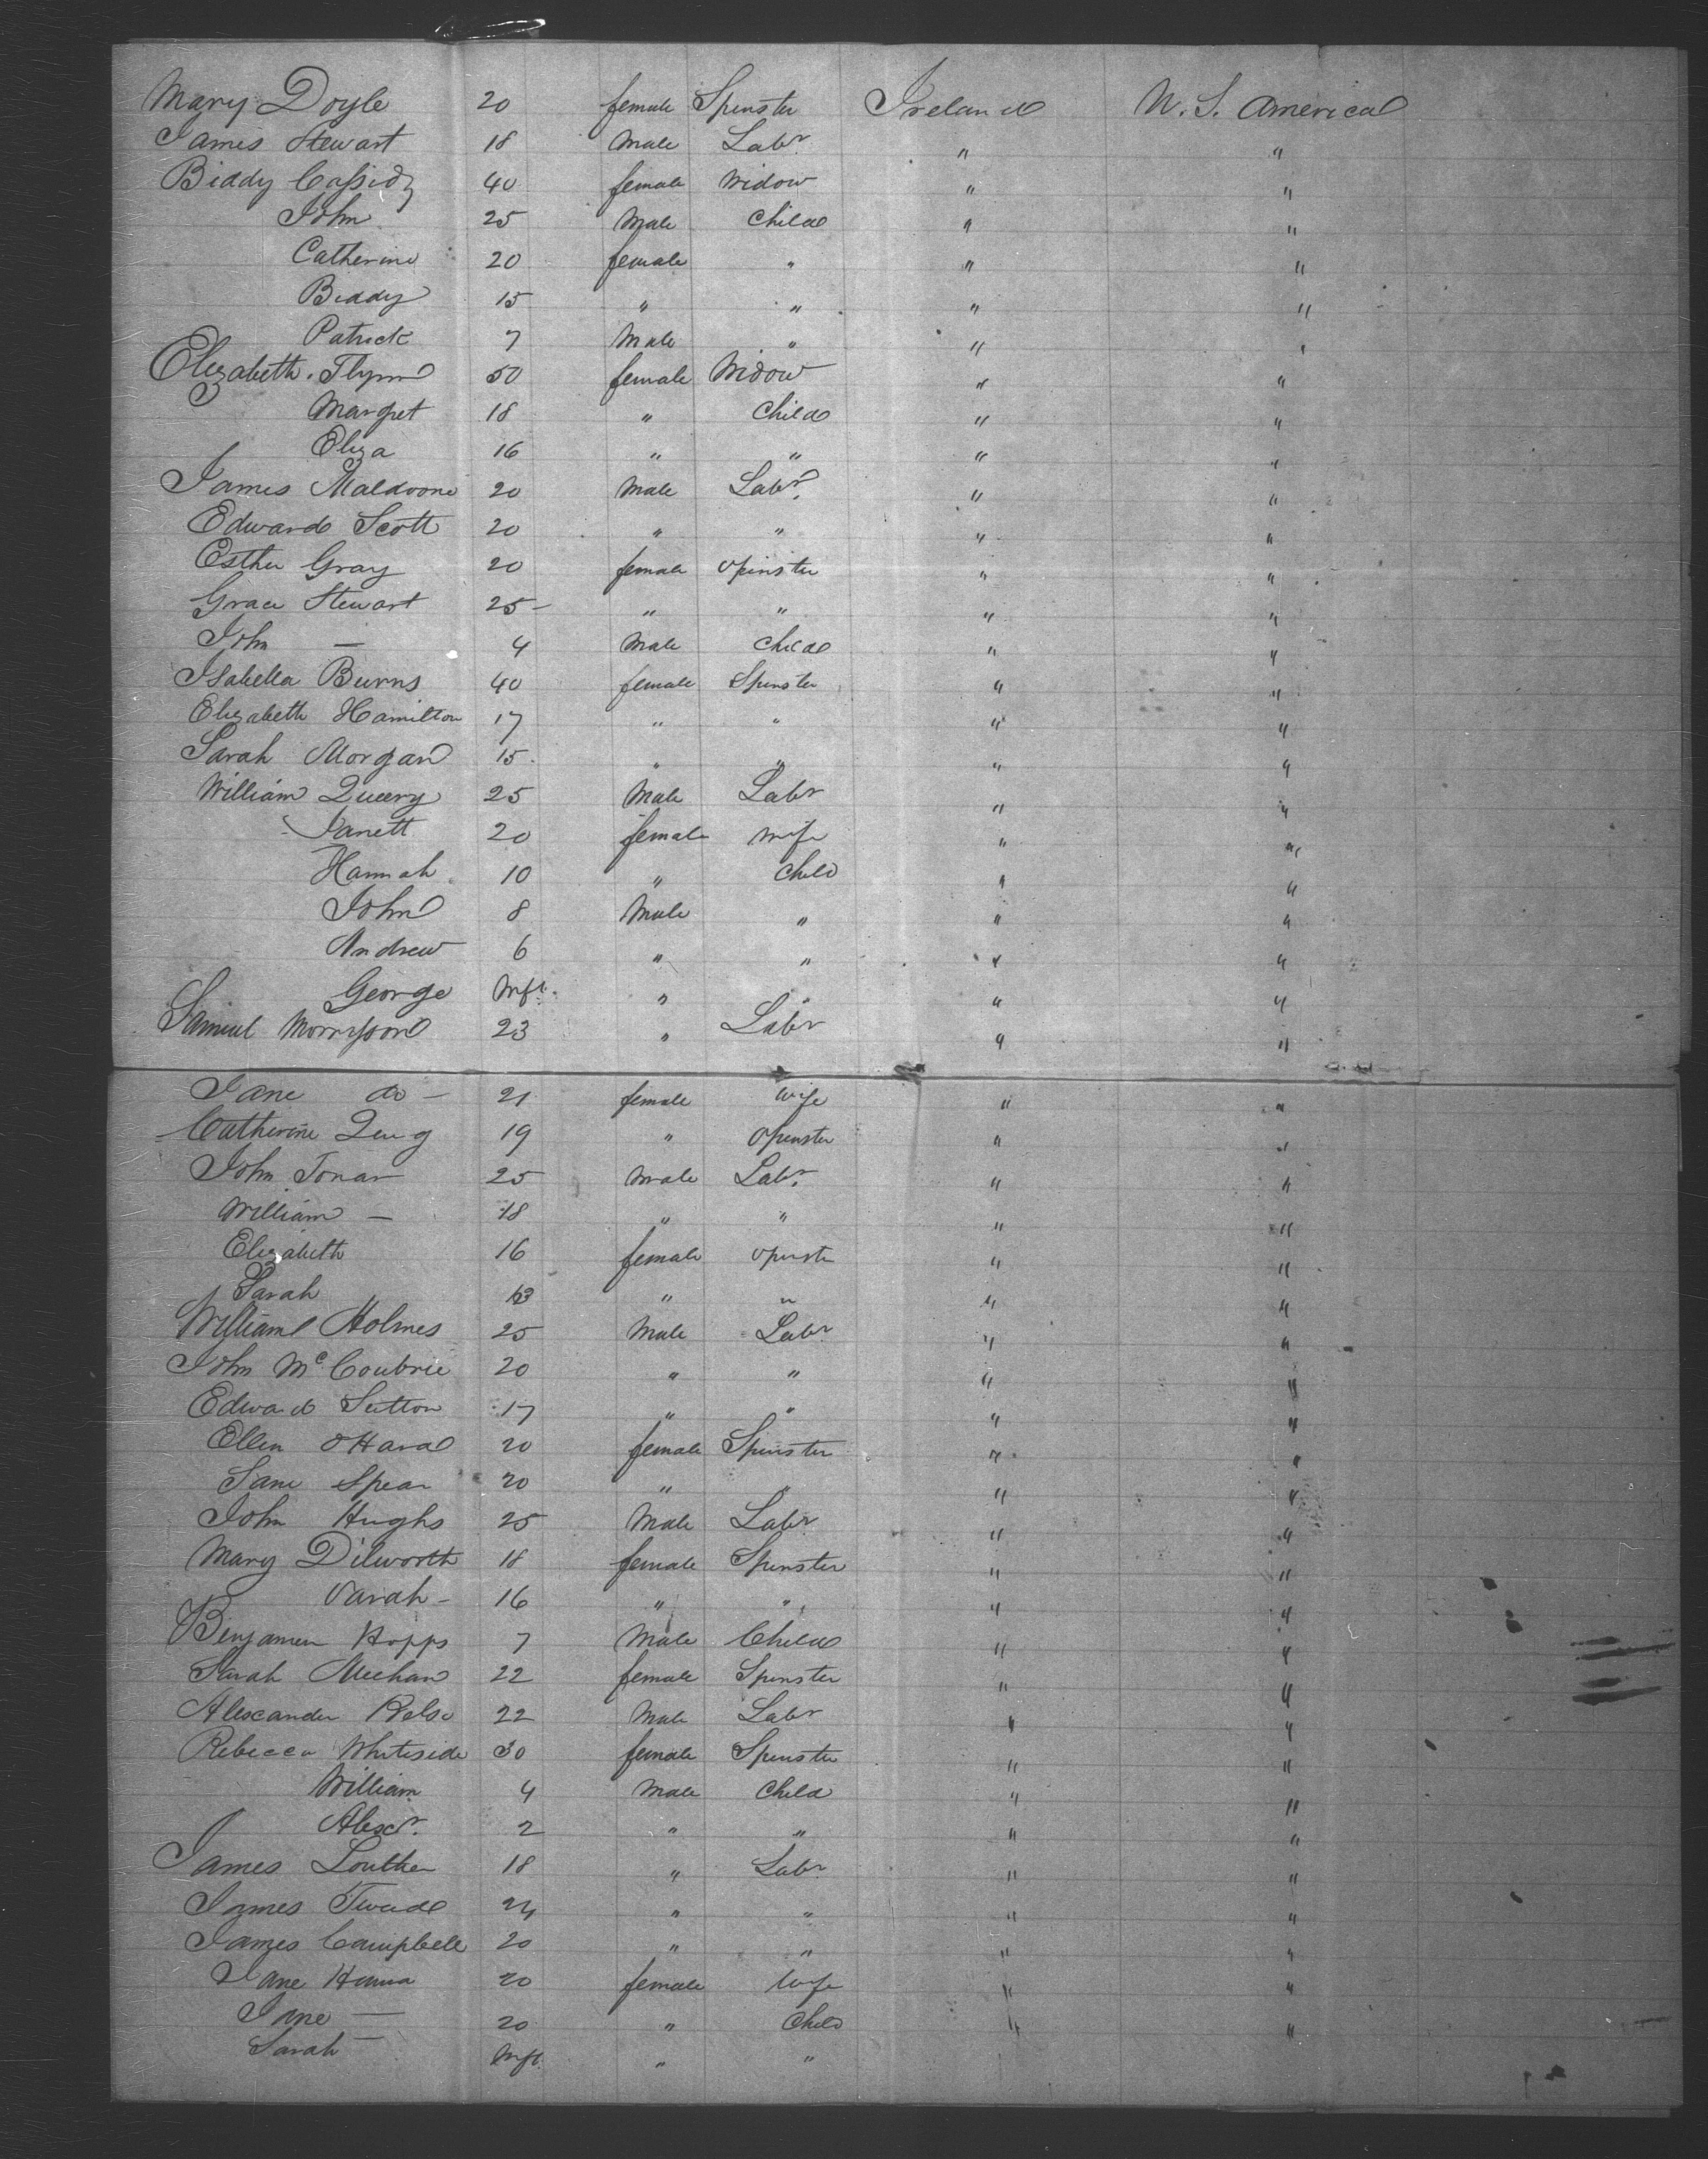 Mary Doyle 20 female Spinster Ireland U. S. America
James Stewart 18 Male Labr " "
Biddy Cassidy 40 female Widow " "
John 25 Male Child " "
Catherine 20 female " " "
Biddy 15 " " " "
Patrick 7 Male " " "
Elizabeth Flynn 50 female Widow " "
Margret 18 " Child " "
Eliza 16 " " " "
James Maldoone 20 Male Labr. " "
Edward Scott 20 " " " "
Esther Gray 20 female Spinster " "
Grace Stewart 25 - " " " "
John — 4 Male Child " "
Isabella Burns 40 female Spinster " "
Elizabeth Hamilton 17 " " " "
Sarah Morgan 15 " " " "
William Queery 25 Male Labr " "
Janett 20 female wife " "
Hannah 10 " Child " "
John 8 Male " " "
Andrew 6 " " " "
George Inft. " " " "
Samuel Morrisson 23 " Labr " "
Jane do - 21 female wife " "
Catherine 19 " Spinster " "
John 25 Male Labr. " "
William — 18 " " " "
Elizabeth 16 female Spinster " "
Sarah 13 " " " "
William Holmes 25 Male Labr " "
John McCoubrie 20 " " " "
Edward Sutton 17 " " " "
Ellen O Hara 20 female Spinster " "
Jane Spear 20 " " " "
John Hughs 25 Male Labr " "
Mary Dilworth 18 female Spinster " "
Sarah - 16 " " " "
Benjamen Hopps 7 Male Child " "
Sarah Meehan 22 female Spinster " "
Alexander Kelso 22 Male Labr " "
Rebecca Whiteside 30 female Spinster " "
William 4 Male Child " "
Alexr. 2 " " " "
James Louther 18 " Labr " "
James Tweed 24 " " " "
James Campbell 20 " " " "
Jane Hanna 20 female Wife " "
Jane — 20 " Child " "
Sarah — Inft. " " "